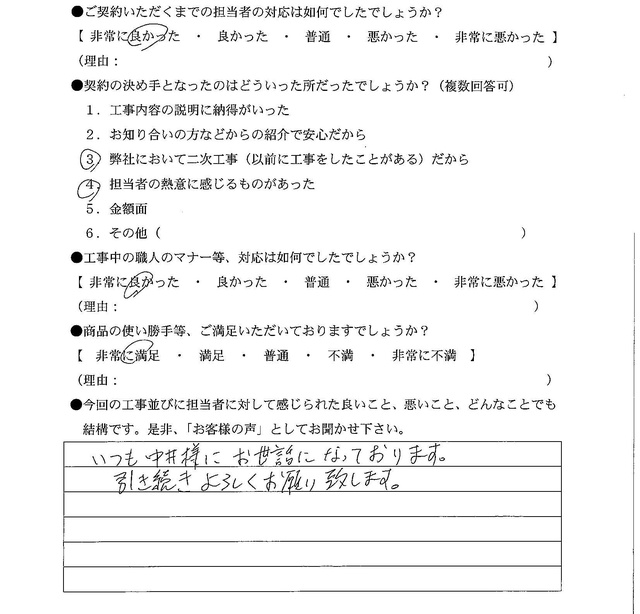 ●ご契約いただくまでの担当者の対応は如何でしたでしょうか？
【 非常に良かった ・ 良かった ・ 普通 ・ 悪かった ・ 非常に悪かった 】
（理由： ）
●契約の決め手となったのはどういった所だったでしょうか？（複数回答可）
１．工事内容の説明に納得がいった
２．お知り合いの方などからの紹介で安心だから
３．弊社において二次工事（以前に工事をしたことがある）だから
４．担当者の熱意に感じるものがあった
５．金額面
６．その他（ ）
●工事中の職人のマナー等、対応は如何でしたでしょうか？
【 非常に良かった ・ 良かった ・ 普通 ・ 悪かった ・ 非常に悪かった 】
（理由： ）
●商品の使い勝手等、ご満足いただいておりますでしょうか？
【 非常に満足 ・ 満足 ・ 普通 ・ 不満 ・ 非常に不満 】
（理由： ）
●今回の工事並びに担当者に対して感じられた良いこと、悪いこと、どんなことでも
結構です。是非、「お客様の声」としてお聞かせ下さい。
いつも中井様にお世話になっております。
引き続きよろしくお願い致します。